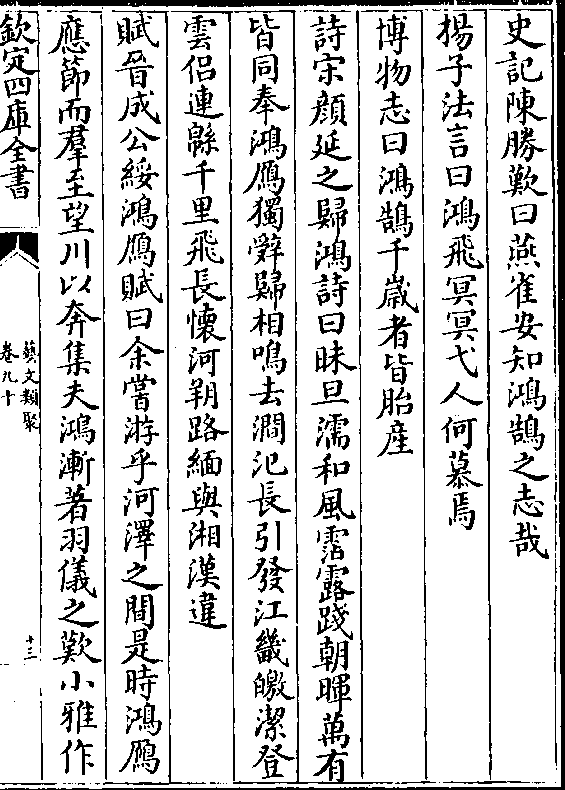 史記陳勝歎曰燕雀安知鴻鵠之志哉
揚子法言曰鴻飛冥冥弋人何慕焉
博物志曰鴻鵠千嵗者皆胎産
詩宋顔延之歸鴻詩曰昧旦濡和風霑露踐朝暉萬有
皆同奉鴻鴈獨辤歸相鳴去澗汜長引發江畿皦潔登
雲侣連緜千里飛長懷河朔路緬與湘漢違
賦晉成公綏鴻鴈賦曰余嘗游乎河澤之間是時鴻鴈
應節而羣至望川以奔集夫鴻漸著羽儀之歎小雅作
欽定四庫全書
藝文類聚
卷九十
十三